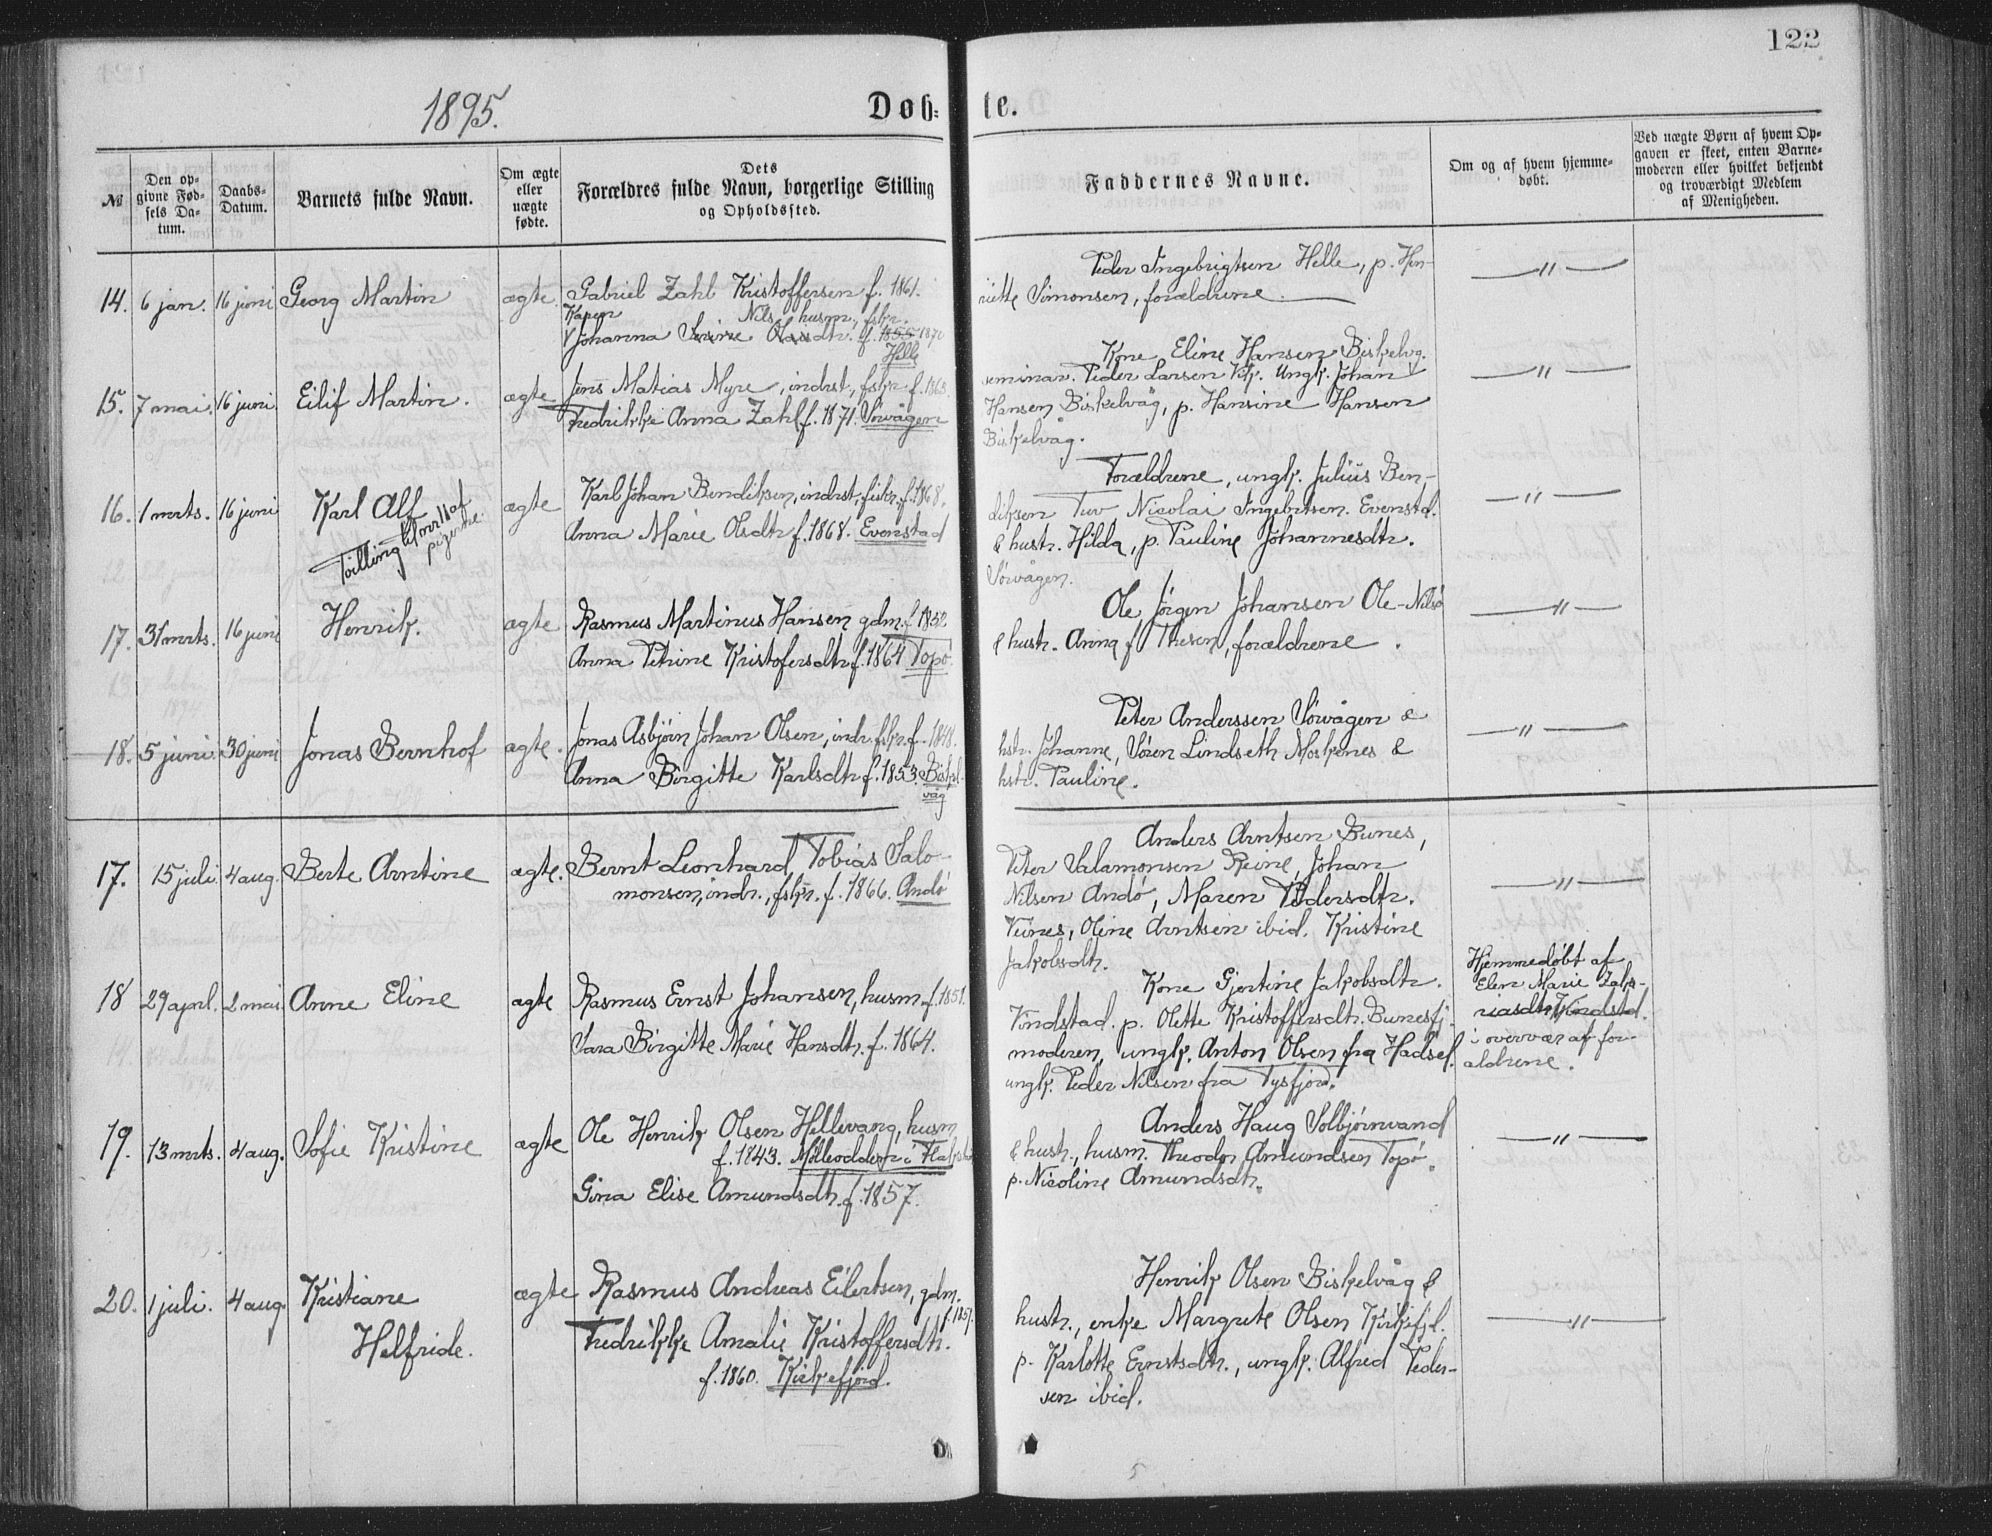 122
1895.
Døb-
te.
№
Den op-
givne Fød-
sels Da-
tum.
Daabs-
Datum.
Barnets fulde Navn.
Om ægte
eller
uægte
fødte.
Dets
Forældres fulde Navn, borgerlige Stilling
og Opholdssted.
Faddernes Navne.
Om og af hvem hjemme-
døbt.
Ved uægte Børn af hvem Op-
gaven er skeet, enten Barne-
moderen eller hvilket bekjendt
og troværdigt Medlem
af Menigheden.
14. 6 jan. 16 juni Georg Martin ægte Gabriel Zahl Kristoffersen f. 1861.
Karen Nils husm., fskr.
Johanna Olausdtr. f. 1855 1870
Helle
Peder Ingebrigtsen Helle, p. Hen-
riette Simonsen, forældrene.
—"—
15. 7 mai. 16 juni. Eilif Martin. ægte Jens Matias Myre, indrst., fskr. f. 1868.
Fredrikke Anna Zahl f. 1871. Sørvågen
Kone Eline Hansen Biskelvg.
seminar. Peder Larsen Vik. Ungk. Johan
Hansen Biskelvåg, p. Hansine Hansen
Biskelvåg.
—"—
16. 1 mrts. 16 juni Karl Alf ægte Karl Johan Bendiksen, indrst., fiskr. f. 1868.
Tvilling til nr 11 af
pigerne.
Anna Marie Olsdtr f. 1868. Evenstad
Forældrene, ungk. Julius Ben-
diksen Tuv Nicolai Ingebrtsen. Evenstd.
& hustr. Hilda, p. Pauline Johannesdtr.
Sørvågen.
—"—
17. 31 mrts. 16 juni Henrik. ægte Rasmus Martinus Hansen gdm. f. 1852
Anna Petrine Kristofersdtr f. 1864 Topø.
Ole Jørgen Johansen Ole-Nilsø
& hustr. Anna f. Thesen, forældrene.
—"—
18. 5 juni 30 juni Jonas Bernhof ægte. Jonas Asbjørn Johan Olsen, indr. fskr. f. 1848.
Anna Birgitte Karlsdtr f. 1853. Biskel-
våg
Peter Anderssen Sørvågen &
hstr. Johanne, Søren Lindseth Moskenes &
hstr. Pauline.
—"—
17. 15 juli 4 aug. Berte Arntine ægte. Bernt Leonhard Tobias Salo-
monsen, indr., fskr. f. 1866. Andø
Anders Arntsen Bunes,
Peter Salamonsen Reine, Johan
Nilsen Andø, Maren Pedersdtr.
Veines, Oline Arntsen ibid. Kristine
Jakobsdtr.
—"—
18 29 aprl. 2 mai Anne Eline ægte Rasmus Ernst Johansen, husm. f. 1851.
Sara Birgitte Marie Hansdtr. f. 1864.
Kone Gjertine Jakobsdtr.
Vindstad. p. Olette Kristoffersdtr. Bunesfj.
moderen, ungk. Anton Olsen fra Hadsel.
ungk. Peder Nilsen fra Tysfjord.
Hjemmedøbt af
Elen Marie Zaka-
riasdtr Vindstad.
i overvær af for-
ældrene.
19. 13 mrts. 4 aug. Sofie Kristine ægte Ole Henrik Olsen Hellevang, husm
f. 1843. Mølleodden i Flakstad
Gina Elise Amundsdtr. f. 1857.
Anders Haug Solbjørnvand
& hustr., husm. Theodor Amundsen Topø.
p. Nicoline Amundsdtr.
—"—
20. 1 juli. 4 aug. Kristiane
Helfride.
ægte Rasmus Andreas Eilertsen, gdm.
f. 1857.
Fredrikke Amalie Kristoffersdtr.
f. 1860. Kirkefjord.
Henrik Olsen Biskelvåg &
hustr., enke Margrete Olsen Kirkefjd.
p. Karlotte Ernstsdtr., ungk. Alfred Peder-
sen ibid.
—"—